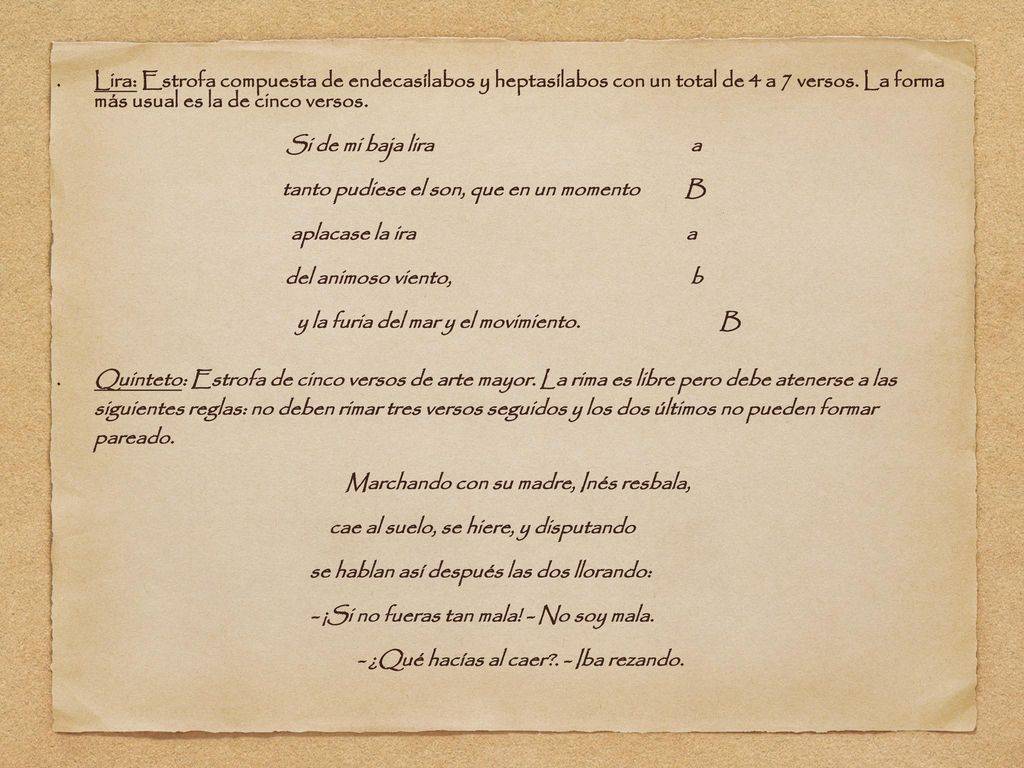 . Lira: Estrofa compuesta de endecasílabos y heptasílabos con un total de 4 a 7 versos. La forma
más usual es la de cinco versos.
Si de mi baja lira a
tanto pudiese el son, que en un momento B
aplacase la ira a
del animoso viento, b
y la furia del mar y el movimiento. B
. Quinteto: Estrofa de cinco versos de arte mayor. La rima es libre pero debe atenerse a las
siguientes reglas: no deben rimar tres versos seguidos y los dos últimos no pueden formar
pareado.
Marchando con su madre, Inés resbala,
cae al suelo, se hiere, y disputando
se hablan así después las dos llorando:
- ¡Si no fueras tan mala! - No soy mala.
- ¿Qué hacías al caer?. - Iba rezando.